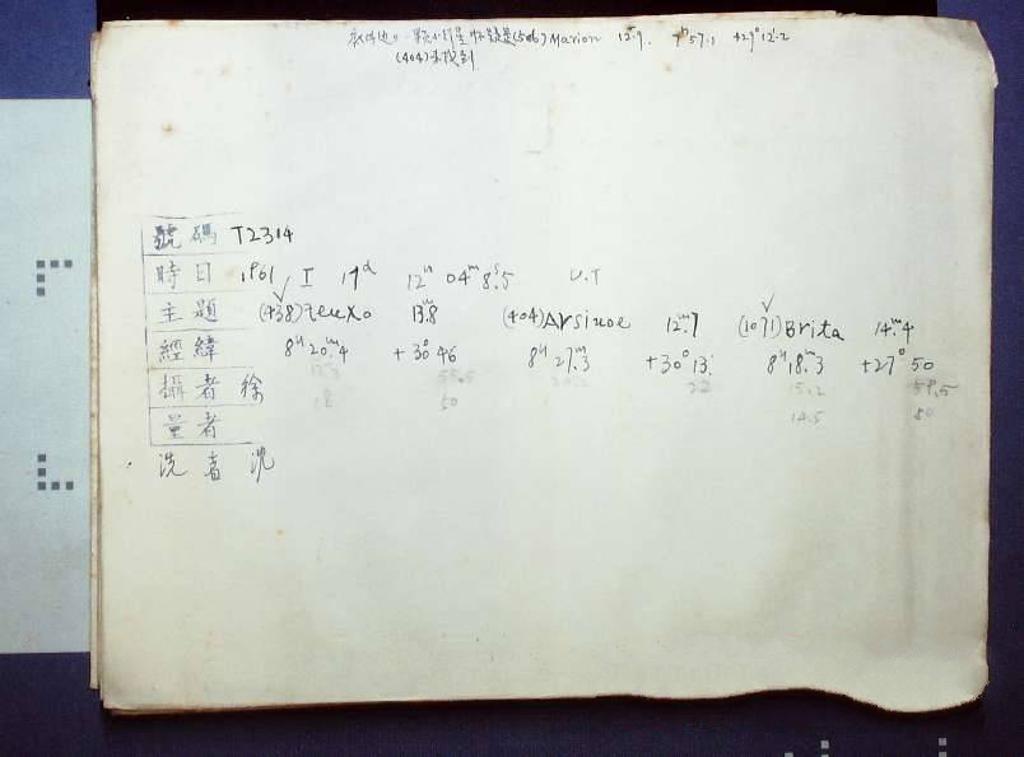 一颗小行星 (506) Marion 12.9 7ʰ57.1 +29°12.2
(404)未找到
號碼 T2314
時日 1961 I 17ᵈ 12ʰ 04ᵐ 8ˢ.5 U.T
主題 (438)Zeuxo 13ᵐ.8 (404)Arsinoe 12ᵐ.7 (1071)Brita 14ᵐ.4
經緯 8ʰ20ᵐ.4 +30°46 8ʰ27ᵐ.3 +30°13 8ʰ18ᵐ.3 +27°50
攝者 徐 22 15.2 59.5
18 50 14.5 50
量者
洗者 沈